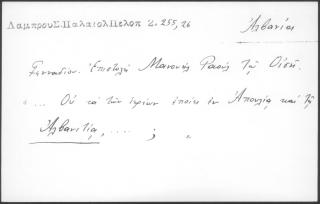 Λαμπρου Σ. Παλαιολ Πελοπ 2. 255, 26
Ἀλβανία
Γενναδίου. Ἐπιστολὴ Μανουὴλ Ραοὺλ τῷ Οἰσῇ.
"... Οὐ τὰ τῶν ἐποίει ἐν Ἀπουλίᾳ καὶ τῇ
Ἀλβανιτίᾳ, .... ; "